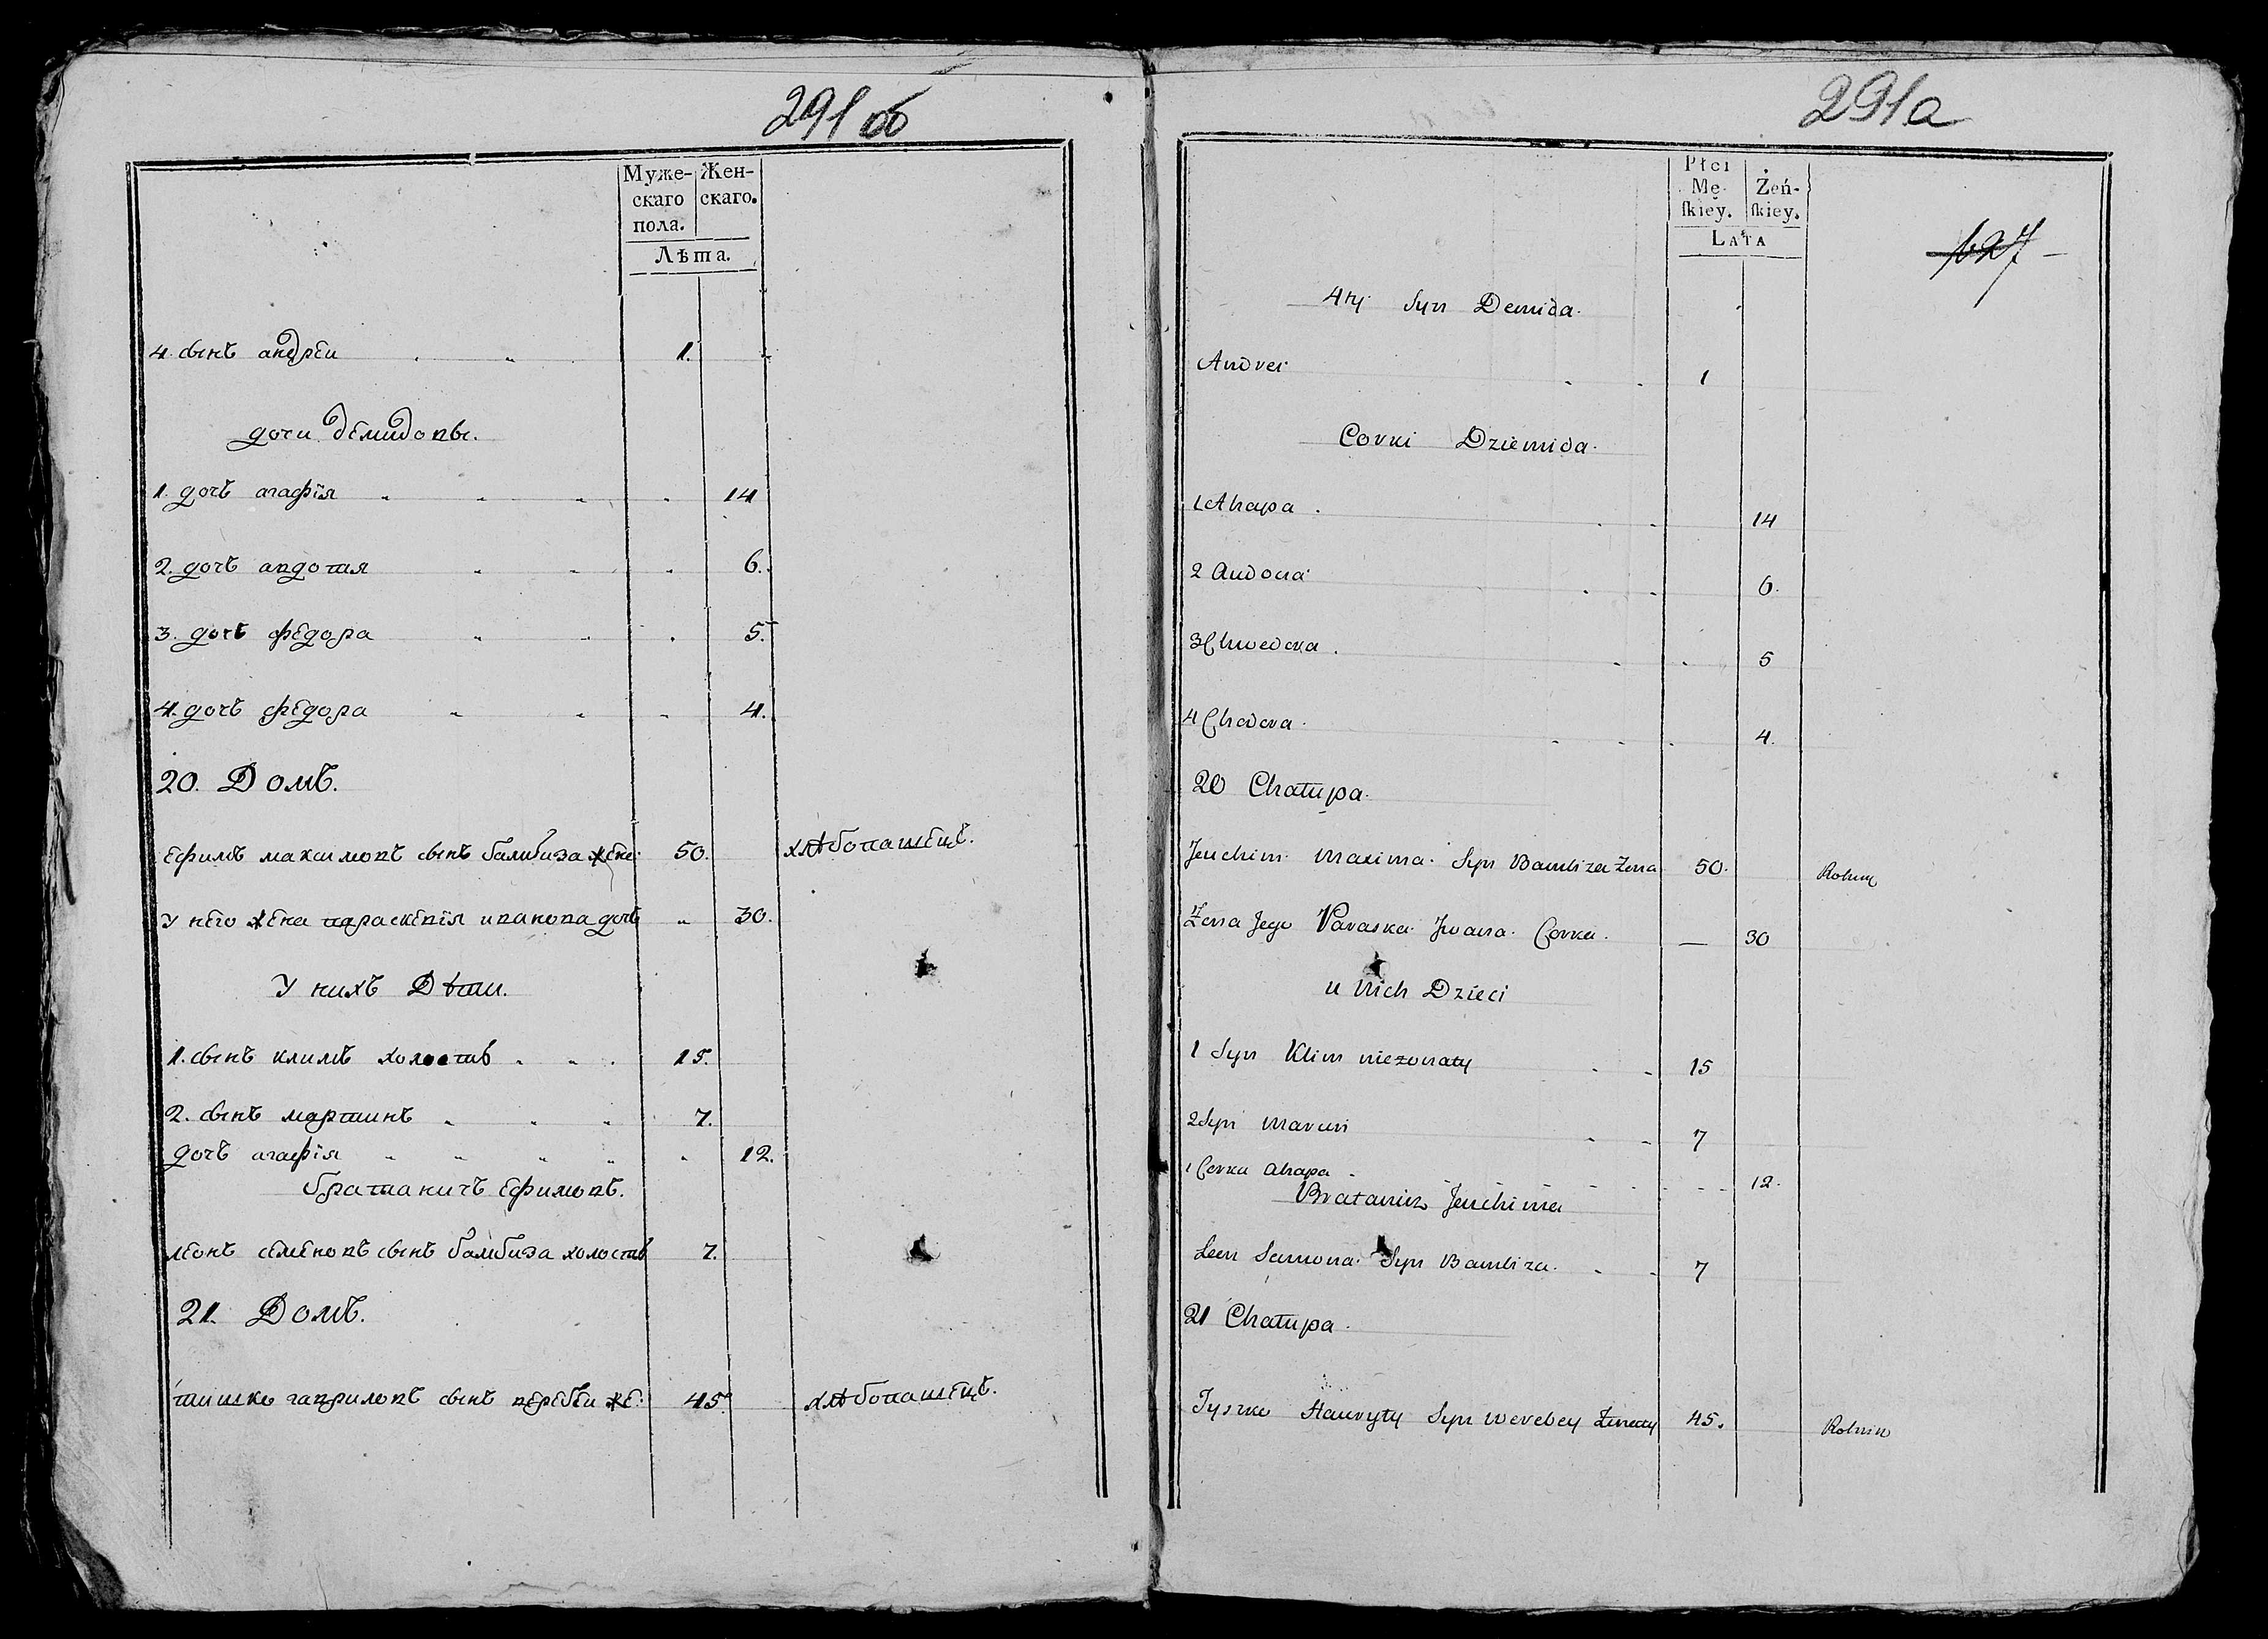 291об
Муже-
скаго
пола.
Жен-
скаго.
Лѣта.
4. сынъ андрей 1.
дочи демидовы.
1. дочь агафїя 14
2. дочь авдотия 6.
3. дочь федора 5.
4. дочь федора 4.
20. Домъ.
ефимъ максимовъ сынъ бамбиза жене: 50. хлѣбопашецъ.
у него жена параскевїя иванова дочь „ 30.
У нихъ Дѣти.
1. сынъ климъ холостъ 15.
2. сынъ мартинъ 7.
дочь агафїя 12.
братаничъ ефимовъ.
леонъ семеновъ сынъ бамбиза холостъ 7.
21. Домъ.
тишко гавриловъ сынъ веребеи же: 45. хлѣбопашецъ.
291а
Płci
Mę-
skiey.
Żeń-
skiey.
LATA
127
4ty Syn Demida
Andrei 1
Corki Dziemida
1 Ahapa 14
2 Audocia 6.
3 Chwedora 5
4 Chodora 4.
20 Chałupa
Jeuchim Maxima Syn Bambiza Żona 50. Rolnik
Żona Jego Paraska Jwana Corka — 30
u Nich Dzieci
1 Syn Klim nieżonaty 15
2 Syn Marcin 7
1 Corka Ahapa 12.
Bratanicz Jeuchima
Leon Samona Syn Bambiza 7
21 Chałupa
Tyszko Hauryły Syn Werebey Żonaty 45. Rolnik